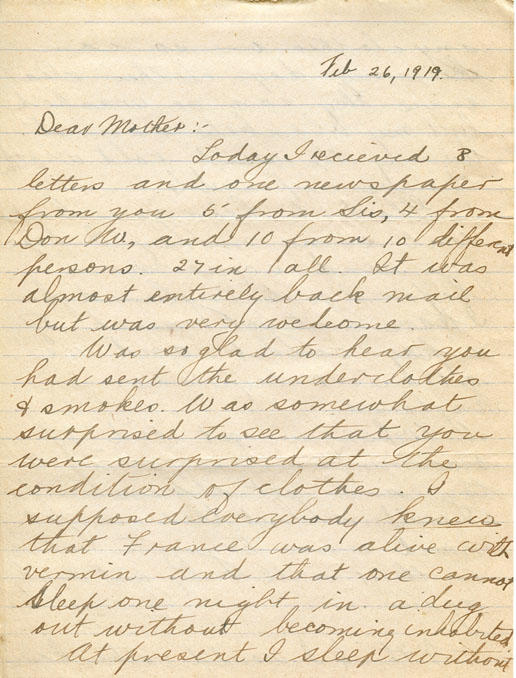 Feb 26, 1919.
Dear Mother:-
Today I recieved 8
letters and one newspaper
from you 5 from Sis, 4 from
Don W., and 10 from 10 different
persons. 27 in all. It was
almost entirely back mail
but was very welcome.
Was so glad to hear you
had sent the underclothes
& smokes. Was somewhat
surprised to see that you
were surprised at the
condition of clothes. I
supposed everybody knew
that France was alive with
vermin and that one cannot
sleep one night in a dug
out without becoming inhabited.
At present I sleep without